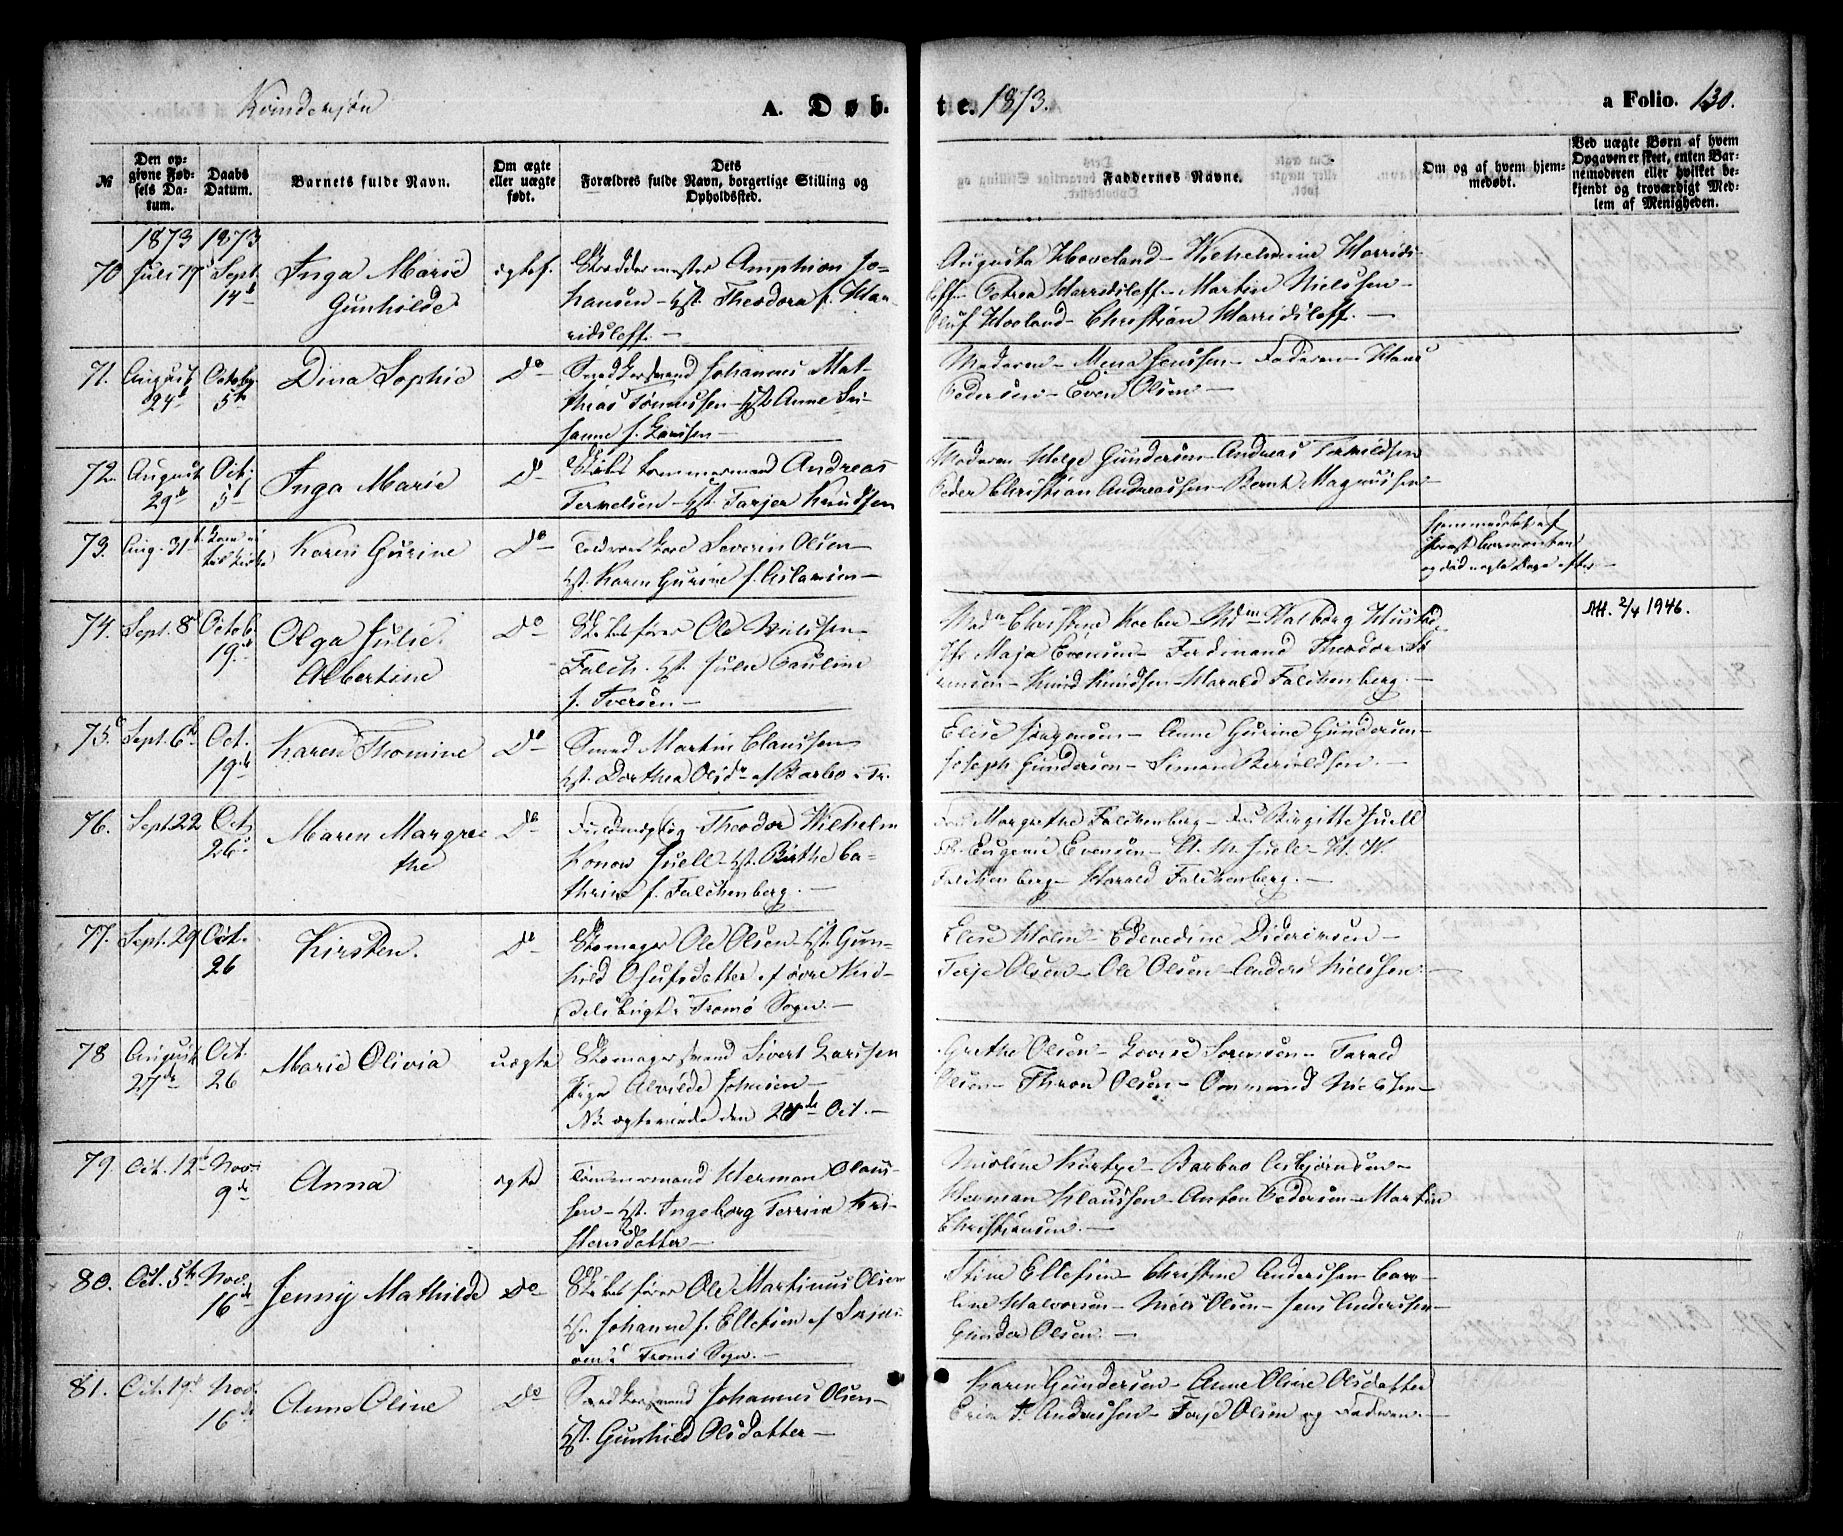 Kvindekjøn A. Døbte. 1873. a Folio. 130.
№
Den opgivne Fødsels Datum.
Daabs Datum.
Barnets fulde Navn.
Om ægte eller uægte født.
Dets Forældres fulde Navn, borgerlige Stilling og Opholdssted.
Faddernes Navne.
Om og af hvem hjemmedøbt.
Ved uægte Børn af hvem Opgaven er skeet, enten Barnemoderen eller hvilket bekjendt og troværdigt Medlem af Menigheden.
1873 1873
70 Juli 17 Sept. 14d
Inga Marie
Gunhilde
ægtef.
Skræddermester Amphion Jo-
hansen - Hst. Theodora f. Har-
ridsleff. -
Augusta Hoveland - Wilhelmine Harrids-
leff - Petrea Harridsleff - Martin Nielssen -
Oluf Hoeland - Christian Harridsleff. -
71. August 24d Octobr 5te
Dina Sophie
Do
Johannes Mat-
thias Tønnessen - Hst. Anne Su-
sanne f. Larssen -
Moderen - Mena Jenssen - Faderen - Hans
Pedersen - Even Olsen -
72. August 29d Oct. 5d
Inga Marie
Do
Skibstømmermand Andreas
Terjesen - Hst. Tarjer Knudsen
Moderen Helge Gundersen - Andreas
Peder Christian Andreassen - Bernt Magnussen -
73. Aug. 31d
Karen Gurine
Do
Severin Olsen -
Hst. Karen Gurine f. Aslaksen -
Hjemmedøbt af
Provst
og død nogle Dage efter -
74. Sept. 8d Octob. 19d
Olga Julie
Albertine
Do
Skibsfører Ole Nielssen
Falch. Hst. Julie Pauline
f. Iversen -
Christine Koeber - Mdm Valborg Hustad
Jfr Maja Evensen - Ferdinand Theodor
Knud Knudsen - Harald Falckenberg. -
Att. 2/4 1946.
75. Sept. 6te Oct. 19de
Karen Thomine
Do
Smed Martin Claussen
Hst. Dorthea Olsdr af Barbo
Elise Jørgensen - Anne Gurine Gundersen -
Joseph Gundersen - Simon -
76. Sept 22 Oct 26
Maren Margre-
the
Do
Fuldmægtig Theodor Wilhelm
Konow Juell - Hst. Birthe Ca-
thrine f. Falckenberg. -
Fru Margrethe Falckenberg - Fru Birgitte Juell
Fr. Eugenie Evensen - Juell - H. W.
Falckenberg - Harald Falckenberg. -
77. Sept. 29 Oct. 26
Kirsten.
Do
Skomager Ole Olsen - Hst. Gun-
hild Osufsdatter af
Tromø Sogn. -
Elise Holm - Edevedine Didriksen -
Terje Olsen - Ole Olsen - Anders Nielssen -
78 August 27de Oct. 26
Marie Olivia
uægte
Skomagersvend Sivert Larssen
Pige Alvilde Johnsen -
NB. ægteviede den Oct. -
Grethe Olsen - Lovise Sørensen - Tarald
Olsen - Thron Olsen - Ommund Nielsen -
79. Oct. 12 Nov. 9de
Anna
ægte
Tømmermand Herman Claus-
sen - Hst. Ingeborg Terrine Kri-
stensdatter -
Barbro Asbjørnsen -
Herman Klaussen - Anton Pedersen - Martin
Christiansen. -
80. Oct. 5te Nov. 16de
Jenny Mathilde
Do
Skibsfører Ole Martinus Olsen
Hst. Johanne f. Ellefsen af
Tromø Sogn. -
Stine Ellefsen - Christine Anderssen - Caro-
line Halvorsen - Niels Olsen - Jens Anderssen -
Gunder Olsen. -
81. Oct. 19d Nov. 16de
Anne Oline
Do
Johannes Olsen -
Hst. Gunhild Olsdatter -
Karen Gundersen - Anne Oline Olsdatter
Andreassen - Terje Olsen og Faderen. -